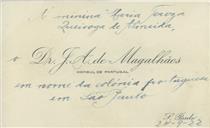 A menina Maria Tereza
Queiroga de Almeida,
o Dr. J. A. de Magalhães
CONSUL DE PORTUGAL
em nome da colónia portuguesa
em São Paulo
S. Paulo